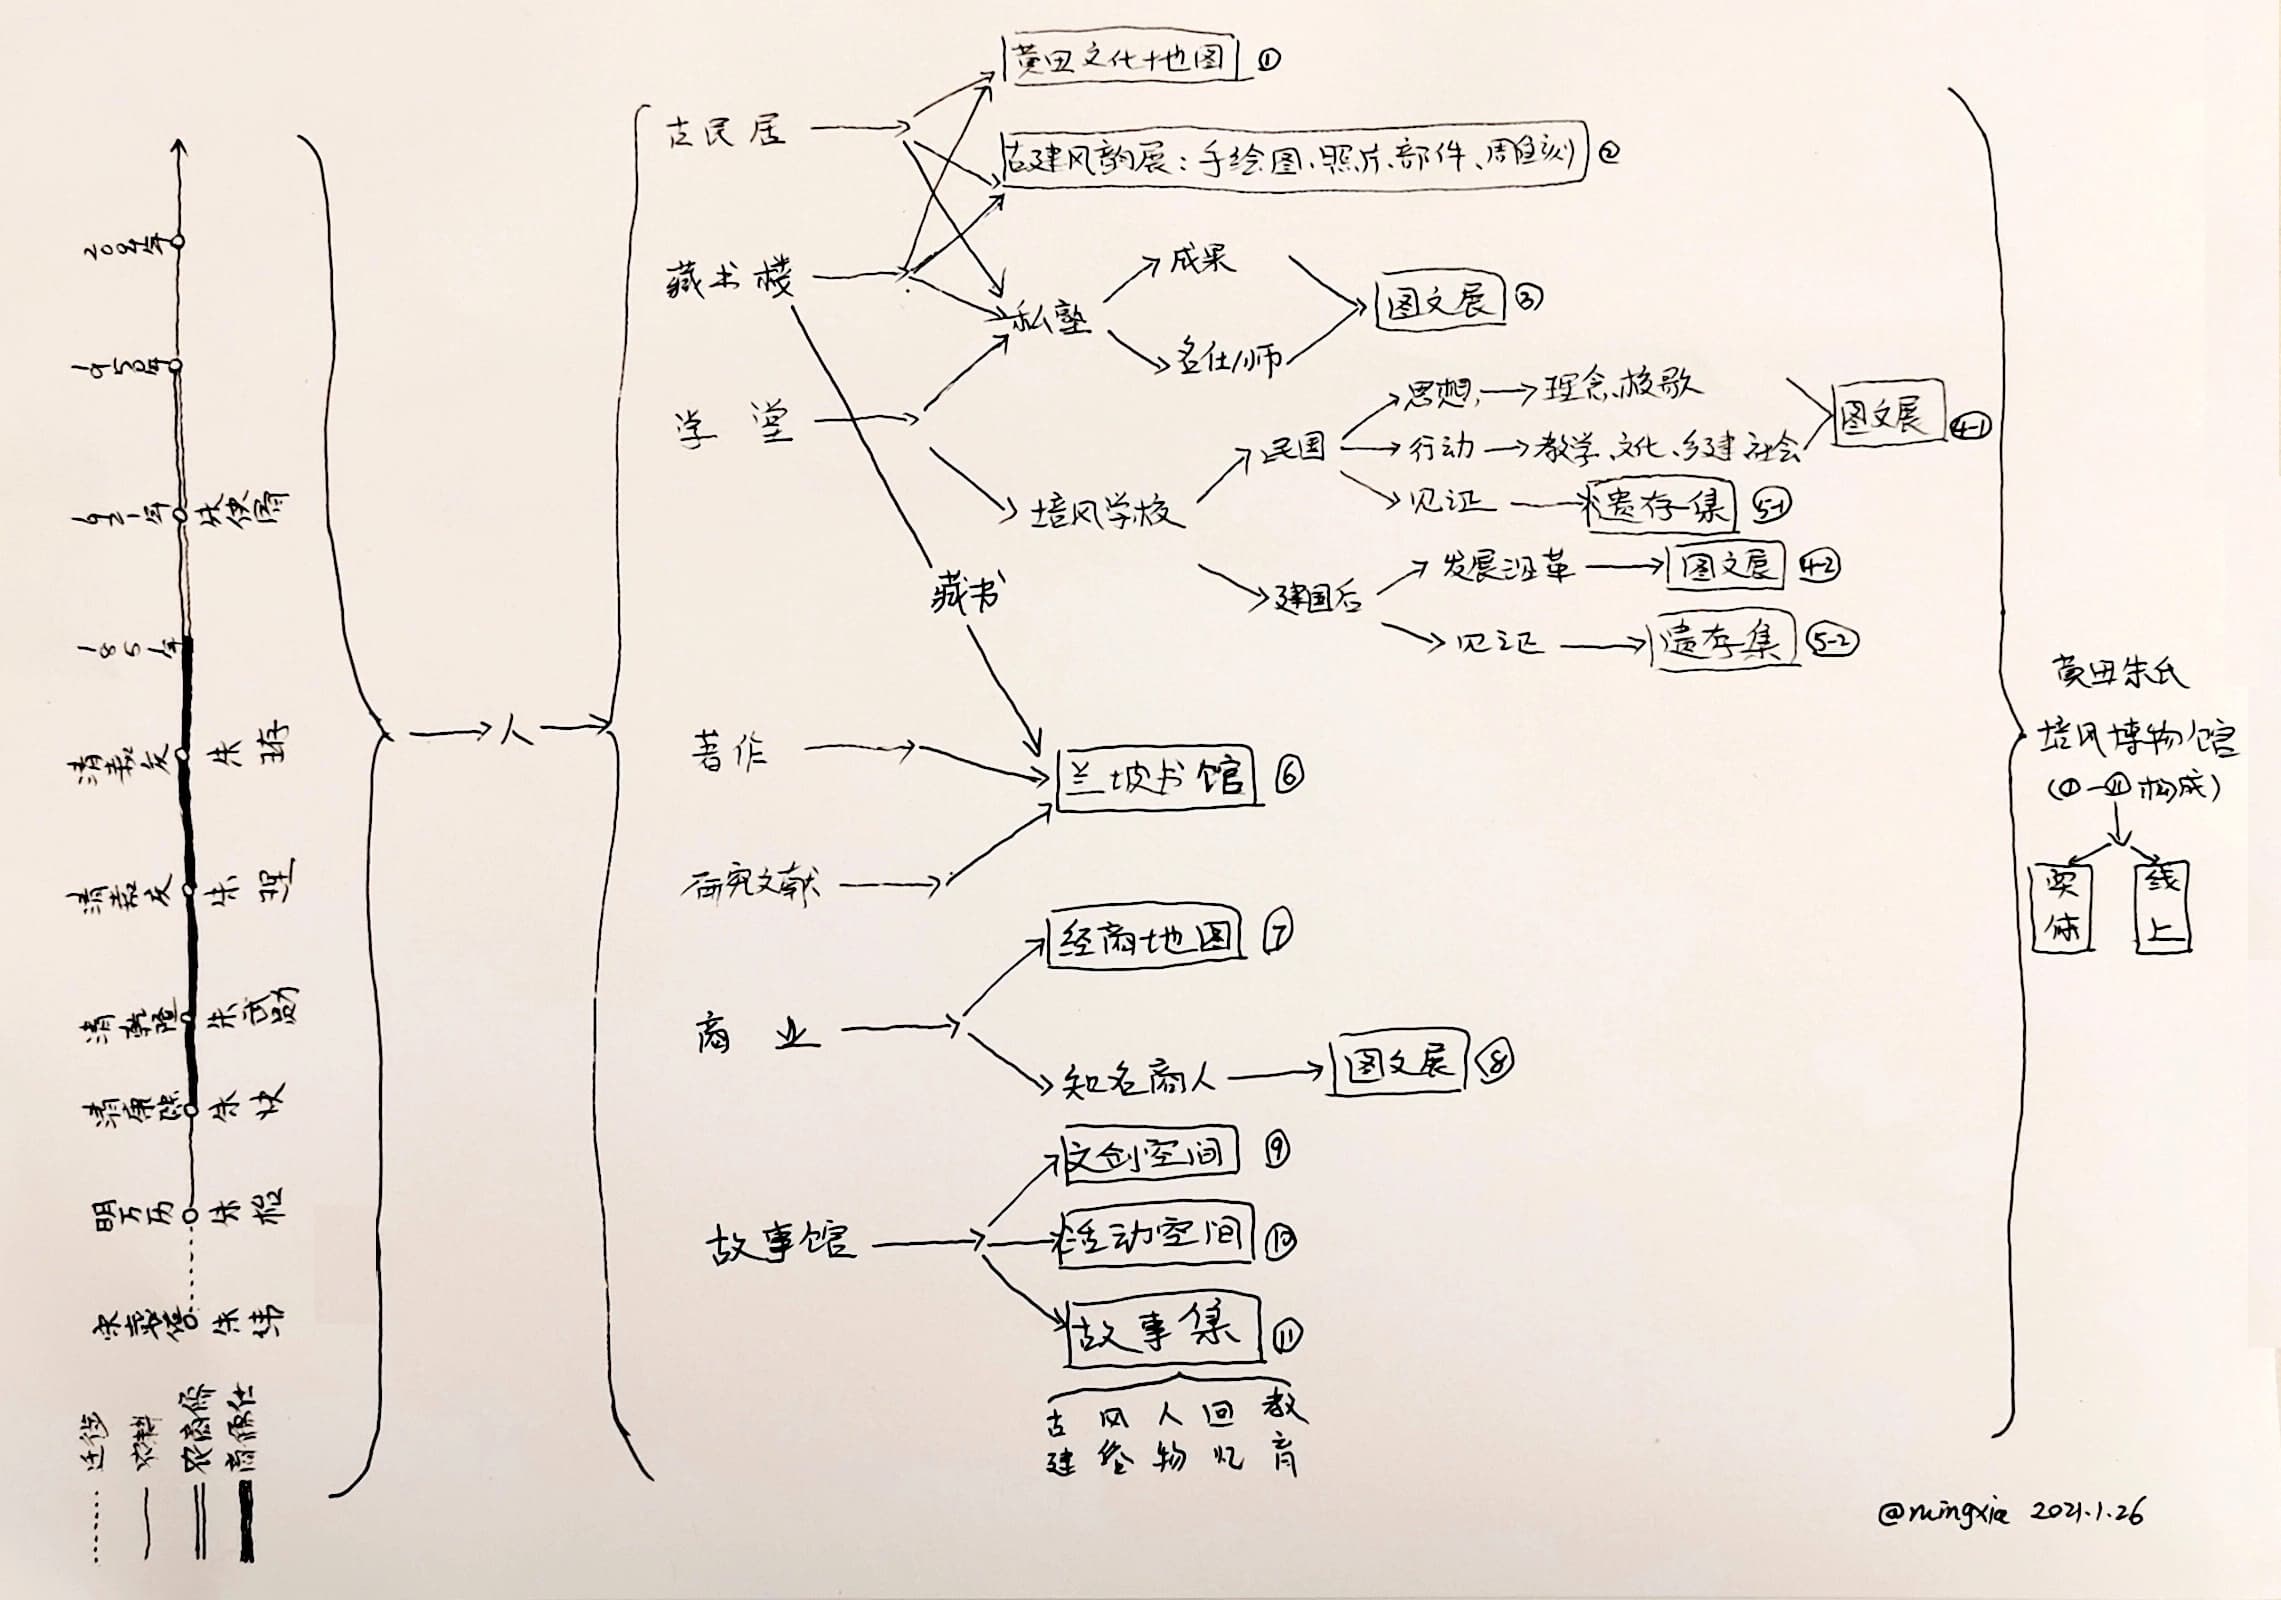 2021年
1950年
1921年 朱使雨
1851年
清嘉庆 朱珔
清嘉庆 朱理
清乾隆 朱武勋
清康熙 朱
明万历 朱
宋 朱纬
迁徙
农耕
农商儒
商儒仕
人
古民居
黄田文化地图 ①
古建风韵展：手绘图、照片、部件、雕刻 ②
藏书楼
私塾
成果
名仕/师
图文展 ③
学堂
培风学校
民国
思想 理念、校歌
行动 教学、文化、乡建、社会
图文展 4-1
见证 遗存集 5-1
建国后
发展沿革 图文展 4-2
见证 遗存集 5-2
藏书
著作
兰坡书馆 ⑥
研究文献
商业
经商地图 ⑦
知名商人 图文展 ⑧
故事馆
文创空间 ⑨
活动空间 ⑩
故事集 ⑪
古建 风俗 人物 回忆 教育
黄田朱氏
培风博物馆
(①—⑪构成)
实体
线上
@mingxia 2021.1.26